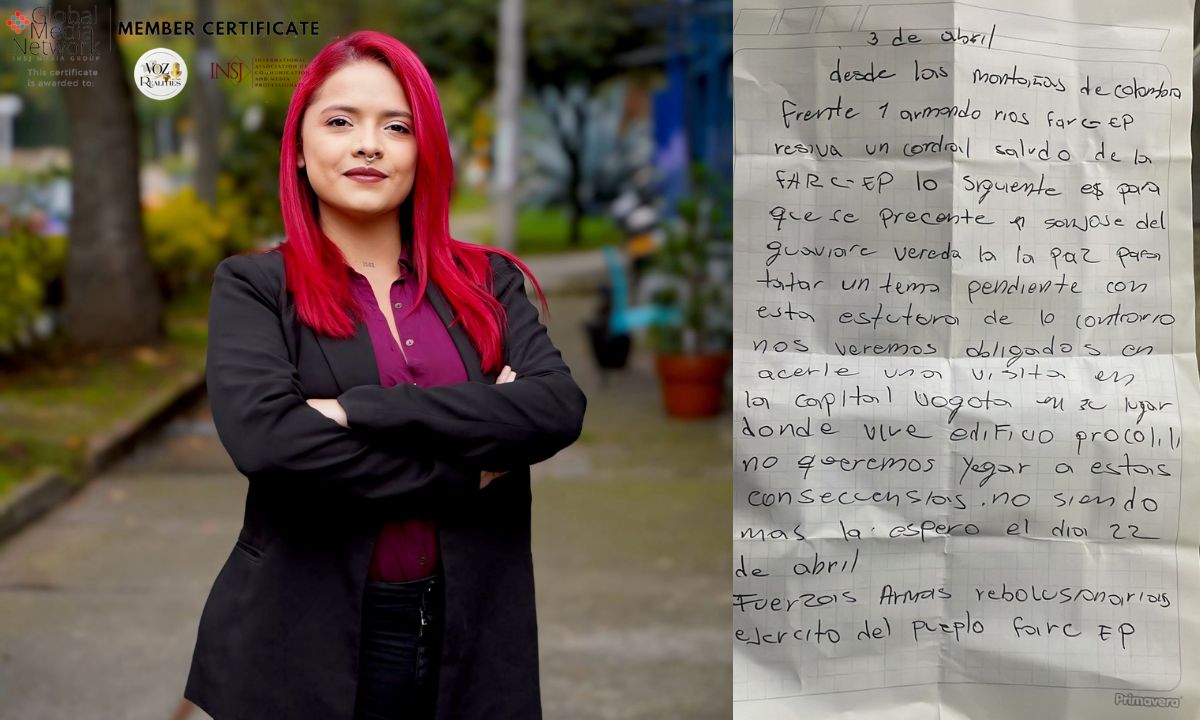 Global
Media
Network
INSJ MEDIA GROUP
This certificate
is awarded to:
MEMBER CERTIFICATE
VOZ
REALITIES
INSJ
INTERNATIONAL
ASSOCIATION OF
COMMUNICATION
AND MEDIA
PROFESSIONALS
3 de abril
desde las montañas de colombia
frente 1 armando rios farc-EP
resiva un cordial saludo de la
FARC-EP lo siguiente es para
que se precente en sanjose del
guaviare vereda la la paz para
tatar un tema pendiente con
esta estutora de lo contrario
nos veremos obligados en
acerle una visita en
la capital vogota en se lugar
donde vive edificio procoli
no queremos yegar a estas
consecuensias. no siendo
mas la espero el dia 22
de abril
Fuerzas Armas rebolusionarias
ejercito del pueplo farc EP
Primavera